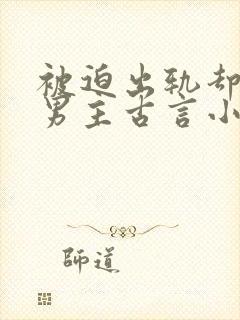 被迫出轨却
男主古言小
師道